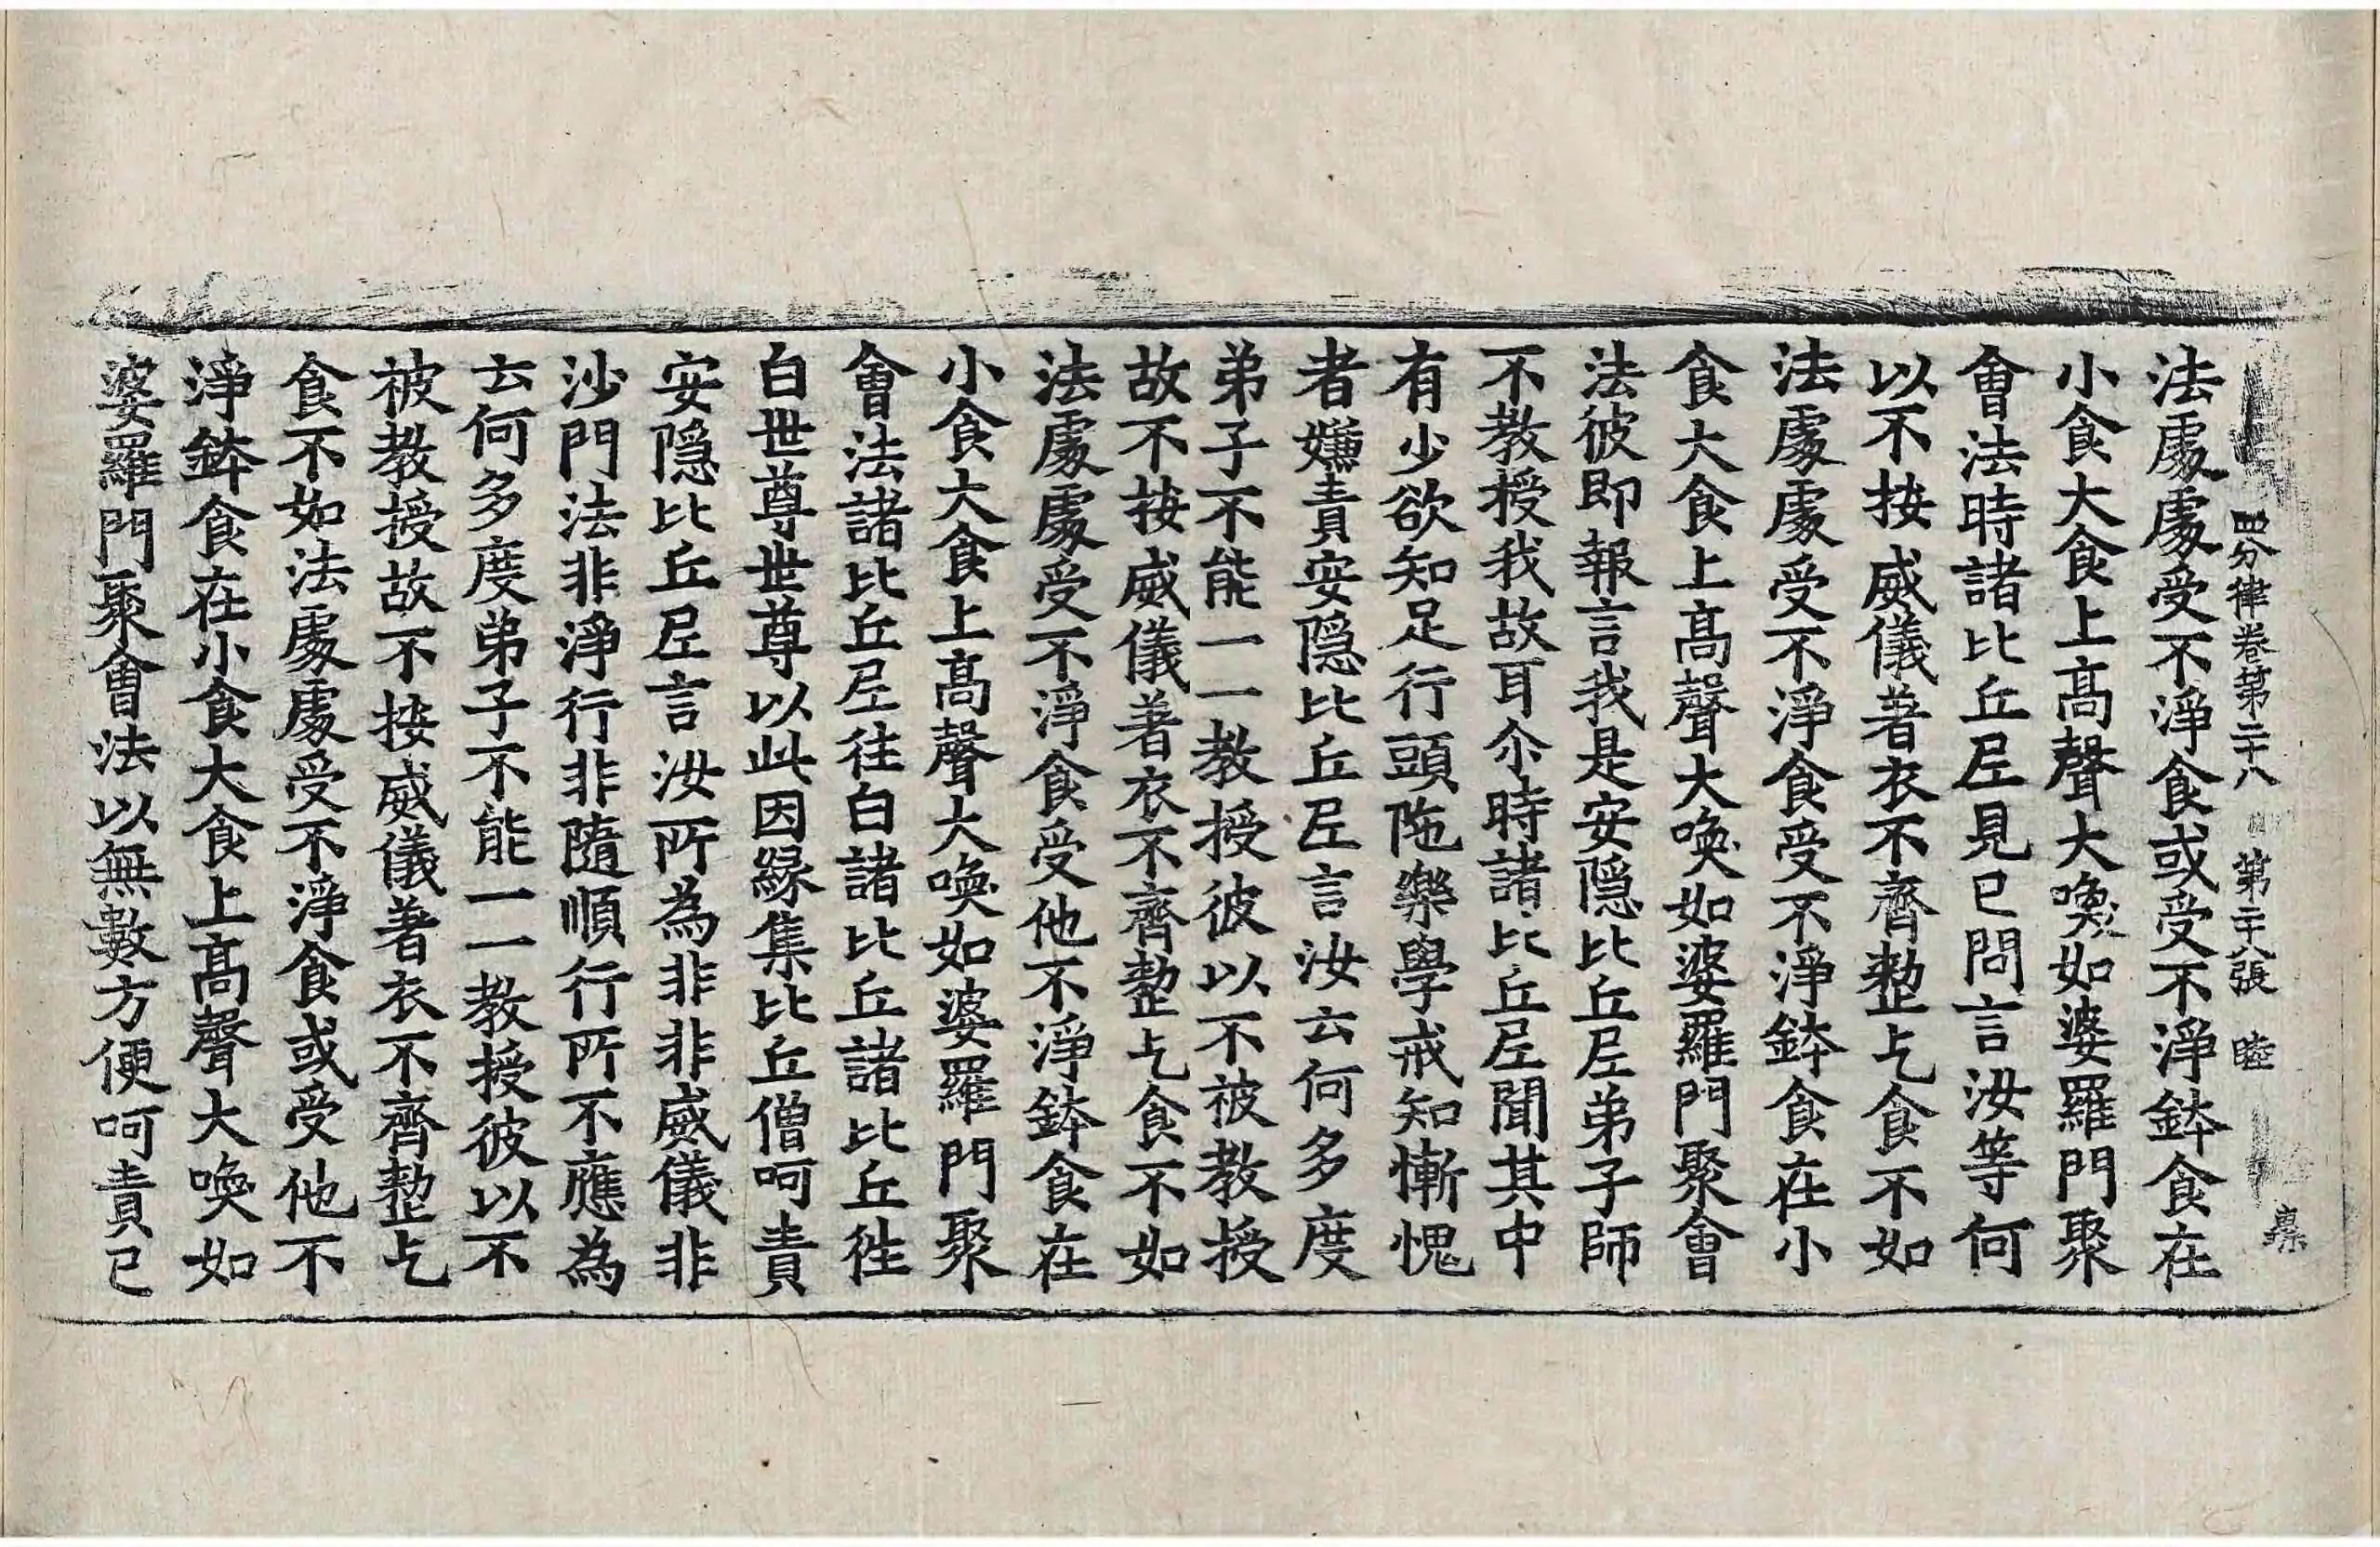 四分律卷第二十八　第二十八張　睦
法處處受不淨食或受不淨鉢食在
小食大食上高聲大喚如婆羅門聚
會法時諸比丘尼見已問言汝等何
以不按威儀著衣不齊整乞食不如
法處處受不淨食受不淨鉢食在小
食大食上高聲大喚如婆羅門聚會
法彼即報言我是安隱比丘尼弟子師
不教授我故耳尒時諸比丘尼聞其中
有少欲知足行頭陁樂學戒知慚愧
者嫌責安隱比丘尼言汝云何多度
弟子不能一一教授彼以不被教授
故不按威儀著衣不齊整乞食不如
法處處受不淨食受他不淨鉢食在
小食大食上高聲大喚如婆羅門聚
會法諸比丘尼往白諸比丘諸比丘徃
白世尊世尊以此因緣集比丘僧呵責
安隱比丘尼言汝所為非非威儀非
沙門法非淨行非隨順行所不應為
云何多度弟子不能一一教授彼以不
被教授故不按威儀著衣不齊整乞
食不如法處處受不淨食或受他不
淨鉢食在小食大食上高聲大喚如
婆羅門聚會法以無數方便呵責已